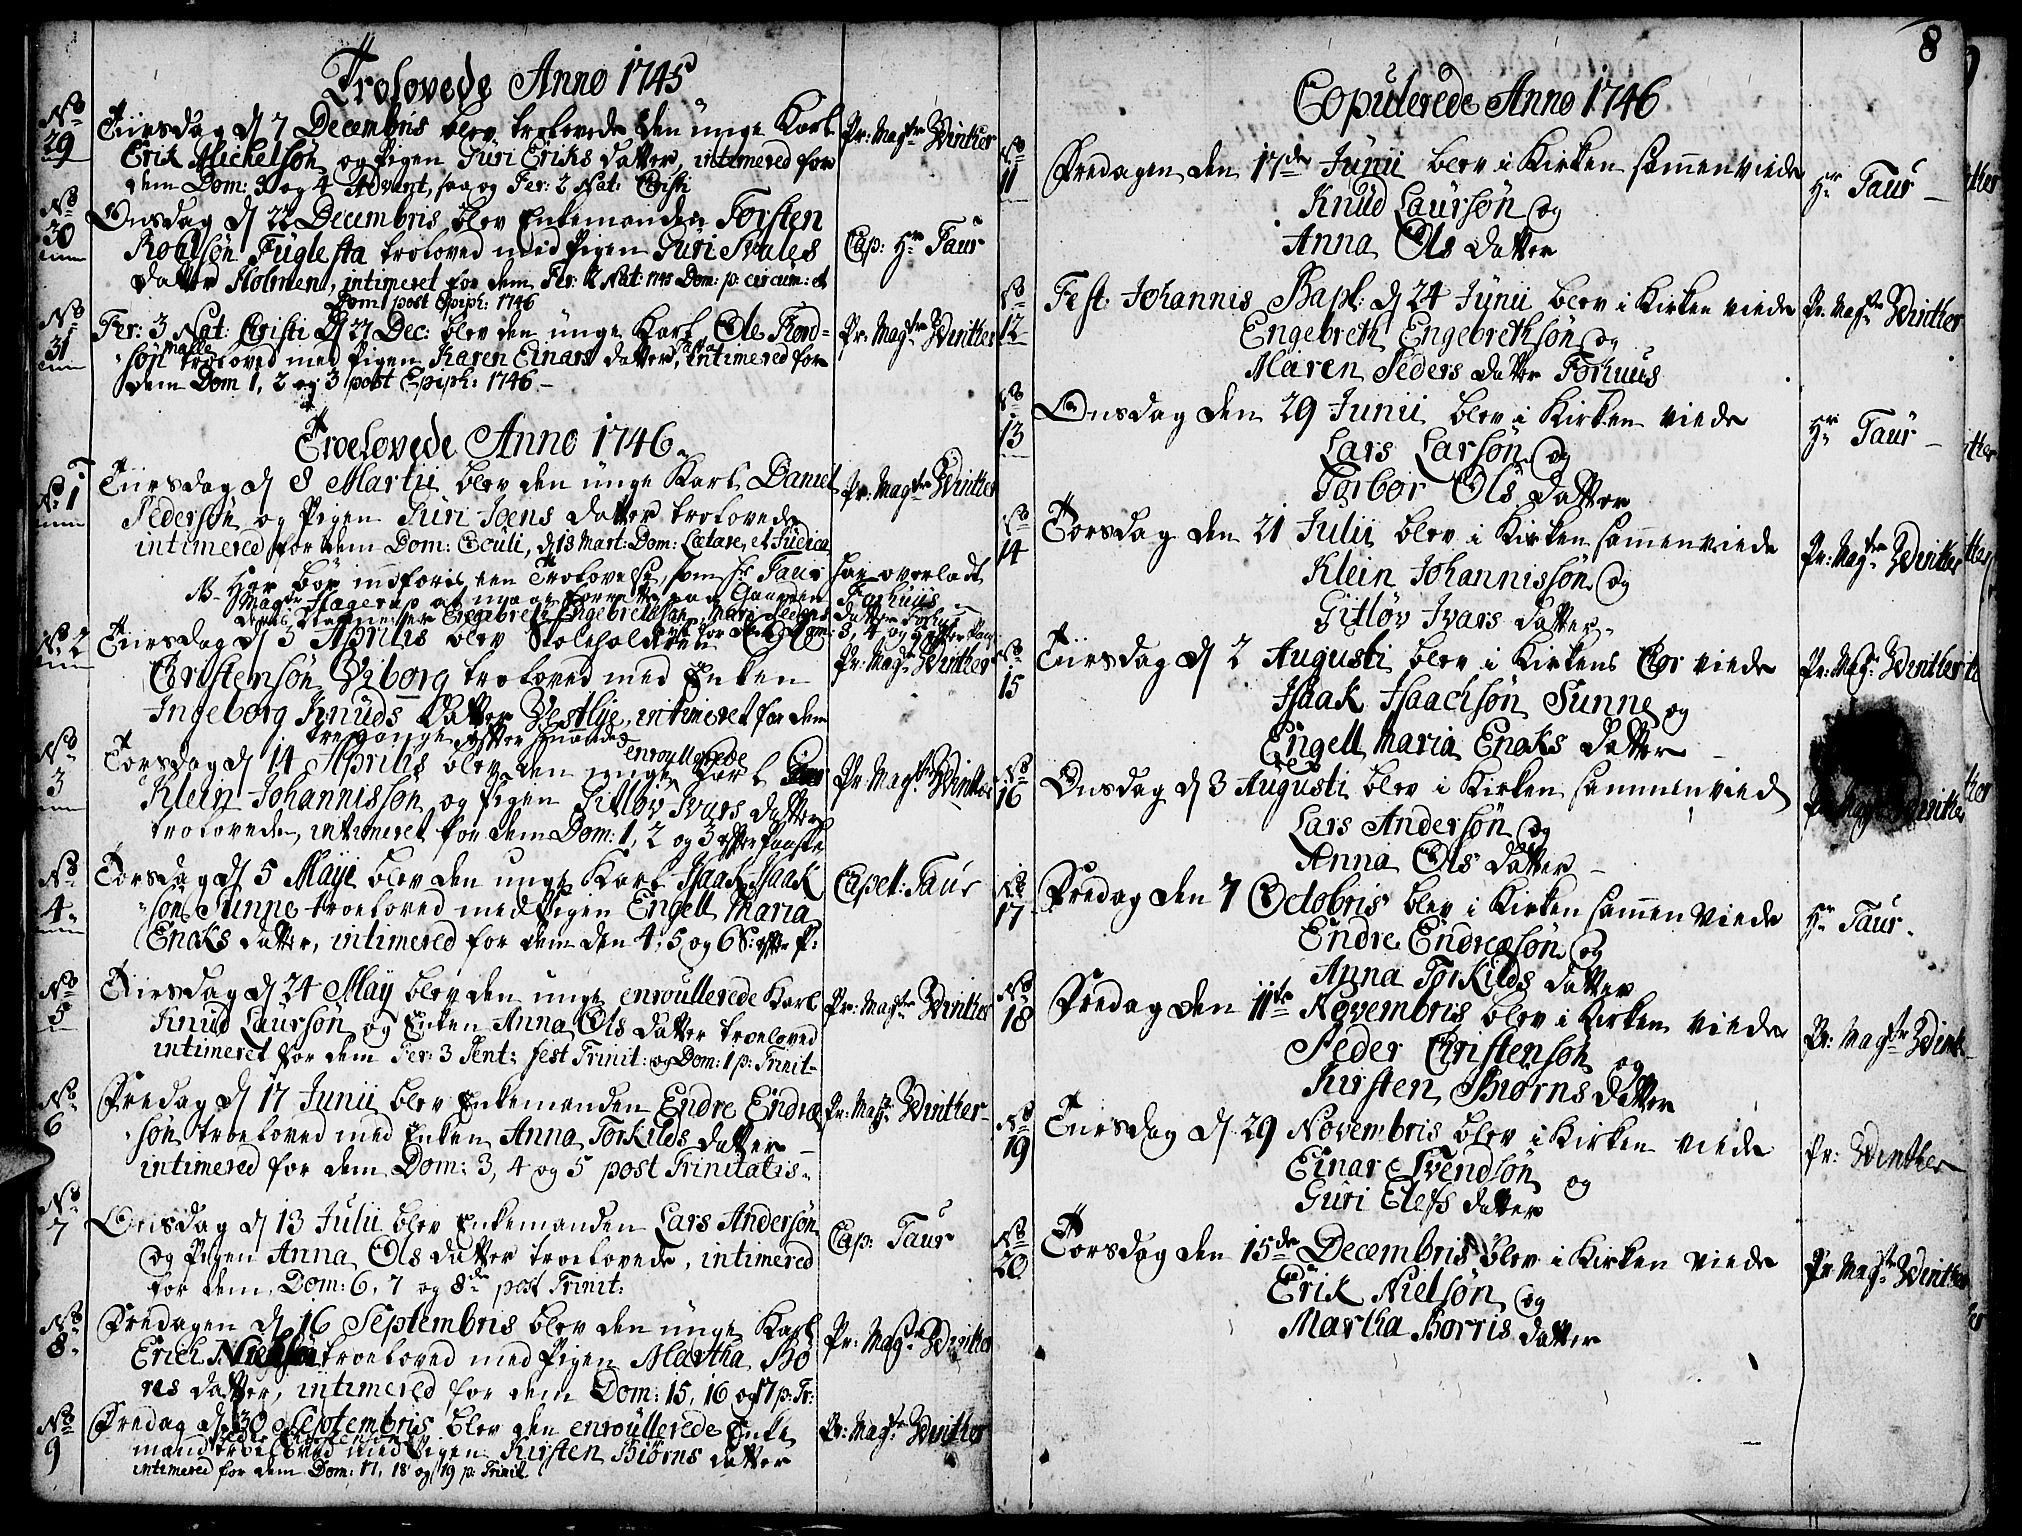 Trolovede Anno 1745
No 29
Tiirsdag d 7 Decembris blev trolovede den unge Karl
Erik Mickelsøn og Pigen Guri Eriks datter, intimered for
dem Dom: 3 og 4 Advent, saa og Fer: 2 Nat: Christi
Pr: Magstr Winther
No 30
Onsdag d 22 Decembris blev Enkemanden Torsten
Roalsøn Fuglesta troloved med Pigen Guri Svales
datter Holmen, intimeret for dem Fer: 2 Nat: 1745 Dom: p: circum: et
Dom: post Epiph: 1746
Cap: Hr Taur
No 31
Fer: 3 Nat: Christi d 27 Dec: blev den unge Karl Ole Tord-
søn troloved med Pigen Karen Einars datter, intimered for
dem Dom 1, 2 og 3 post Epiph: 1746 -
Pr: Magstr Winther
Troelovede Anno 1746
No 1
Tiirsdag d 8 Martii blev den unge Karl Daniel
Pedersøn og Pigen Guri Joens datter trolovede
intimered for dem Dom: Oculi, d 13 Mart: Dom: Lætare, et Judica
Pr: Magstr Winther
NB Her bør indføris een Trolovelse, som Hr Taur har overladt
Magstr Hagerup at maatte forrette paa Gaarden Forhuus
Engebreth Engebrethsøn Mari Peders datter Forhuus
for dem Dom: 3, 4 og 5 efter Paas:
No 2
Tiirsdag d 5 Aprilis blev Stoleholderen Ole
Christensøn Viborg troloved med Enken
Ingeborg Knuds datter Vestlye, intimeret for dem
tre gange efter hinanden
Pr: Magstr Winther
No 3
Torsdag d 14 Aprilis blev den unge enroullerede Karl
Klein Johannissøn og Pigen Gitløv Ivars datter
trolovede, intimeret for dem Dom: 1, 2 og 3 efter Paaske
Pr: Magstr Winther
No 4
Torsdag d 5 Maji blev den unge Karl Isaak Isaak
søn Sunne troeloved med Pigen Engell Maria
Enaks datter, intimered for dem den 4, 5 og 6 S: efter P:
Capel: Taur
No 5
Tiirsdag d 24 May blev den unge enroullerede Karl
Knud Laursøn og Enken Anna Ols datter troeloved
intimeret for dem Fer: 3 Pent: fest Trinit: og Dom: 1 p: Trinit-
Pr: Magstr Winther
No 6
Fredag d 17 Junii blev Enkemanden Endre Endre
søn troeloved med Enken Anna Torkilds datter
intimered for dem Dom: 3, 4 og 5 post Trinitatis.
Pr: Magstr Winther
No 7
Onsdag d 13 Julii blev Enkemanden Lars Andersøn
og Pigen Anna Ols datter troelovede, intimered
for dem Dom: 6, 7 og 8de post Trinit:
Cap: Taur
No 8
Fredagen d 16 Septembris blev den unge Karl
Erich Nielsøn troeloved med Pigen Martha Bo
res datter, intimered for dem Dom: 15, 16 og 17 p: Tr:
Pr: Magstr Winther
No 9
Fredag d 30 Septembris blev den enroullerede Enke
mand troeloved med Pigen Kirsten Biørns datter
intimered for dem Dom: 17, 18 og 19 p: Trinit
Pr: Magstr Winther
8
Copulerede Anno 1746
No 11
Fredagen den 17de Junii blev i Kirken sammenviede
Knud Laursøn og
Anna Ols datter
Hr Taur
No 12
Fest. Johannis Bapt: d 24 Junii blev i Kirken viede
Engebreth Engebrethsøn og
Maren Peders datter Forhuus
Pr: Magstr Winther
No 13
Onsdag den 29 Junii blev i Kirken viede
Lars Larsøn og
Torbor Ols datter
Hr Taur
No 14
Torsdag den 21 Julii blev i Kirken sammenviede
Klein Johannissøn og
Gitløv Ivars datter
Pr: Magstr Winther
No 15
Tiirsdag d 2 Augusti blev i Kirkens Chor viede
Isaak Isaachsøn Sunne og
Engell Maria Enaks datter
Pr: Magstr Winther
No 16
Onsdag d 3 Augusti blev i Kirken sammenvied
Lars Andersøn og
Anna Ols datter
Pr: Magstr Winther
No 17
Fredag den 7 Octobris blev i Kirken sammen viede
Endre Endresøn og
Anna Torkilds datter
Hr Taur.
No 18
Fredag den 11te Novembris blev i Kirken viede
Peder Christensøn og
Kirsten Biørns datter
Pr: Magstr Winth
No 19
Tiirsdag d 29 Novembris blev i Kirken viede
Einar Svendsøn og
Guri Elefs datter
Pr: Winther
No 20
Torsdag den 15de Decembris blev i Kirken viede
Erik Nielsøn og
Martha Borris datter
Pr Magstr Winther